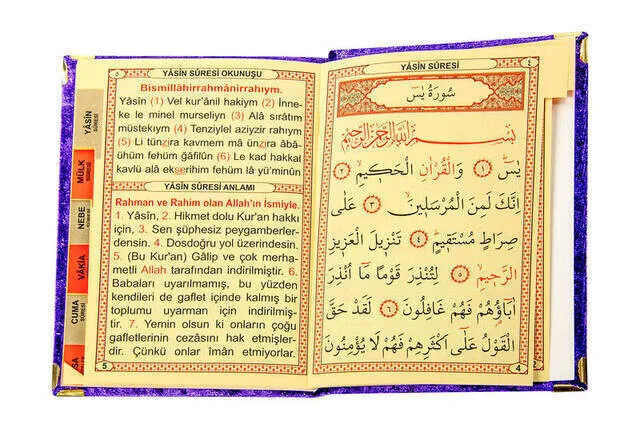 ٥
YÂSİN SÛRESİ OKUNUŞU
Bismillâhirrahmânirrahıym.
Yâsîn (1) Vel kur'ânil hakiym (2) İnne-
ke le minel murseliyn (3) Alâ sırâtım
müstekıym (4) Tenziylel aziyzir rahıym
(5) Li tünzıra kavmem mâ ünzıra âbâ-
ühüm fehüm ğâfilûn (6) Le kad hakkal
kavlü alâ ekserihim fehüm lâ yü'minûn
YÂSİN SÛRESİ ANLAMI
Rahman ve Rahim olan Allah'ın İsmiyle.
1. Yâsîn, 2. Hikmet dolu Kur'an hakkı
için, 3. Sen şüphesiz peygamberler-
densin. 4. Dosdoğru yol üzerindesin.
5. (Bu Kur'an) Gâlip ve çok merha-
metli Allah tarafından indirilmiştir. 6.
Babaları uyarılmamış, bu yüzden
kendileri de gaflet içinde kalmış bir
toplumu uyarman için indirilmiş-
tir. 7. Yemin olsun ki onların çoğu
gafletlerinin cezasını hak etmişler-
dir. Çünkü onlar îmân etmiyorlar.
5
YÂSİN SÛRESİ
MÜLK SÛRESİ
NEBE
VÂKIA
CUMA SÛRESİ
SA
YÂSİN SÛRESİ
٤
سُورَةُ يٰسٓ
بِسْمِ اللّٰهِ الرَّحْمٰنِ الرَّحِيمِ
يٰسٓ ١ وَالْقُرْاٰنِ الْحَكِيمِ ٢
اِنَّكَ لَمِنَ الْمُرْسَلِينَ ٣ عَلٰى
صِرَاطٍ مُسْتَقِيمٍ ٤ تَنْزِيلَ الْعَزِيزِ
الرَّحِيمِ ٥ لِتُنْذِرَ قَوْمًا مَٓا اُنْذِرَ
اٰبَٓاؤُ۬هُمْ فَهُمْ غَافِلُونَ ٦ لَقَدْ حَقَّ
الْقَوْلُ عَلٰٓى اَكْثَرِهِمْ فَهُمْ لَا يُؤْمِنُونَ
4
2